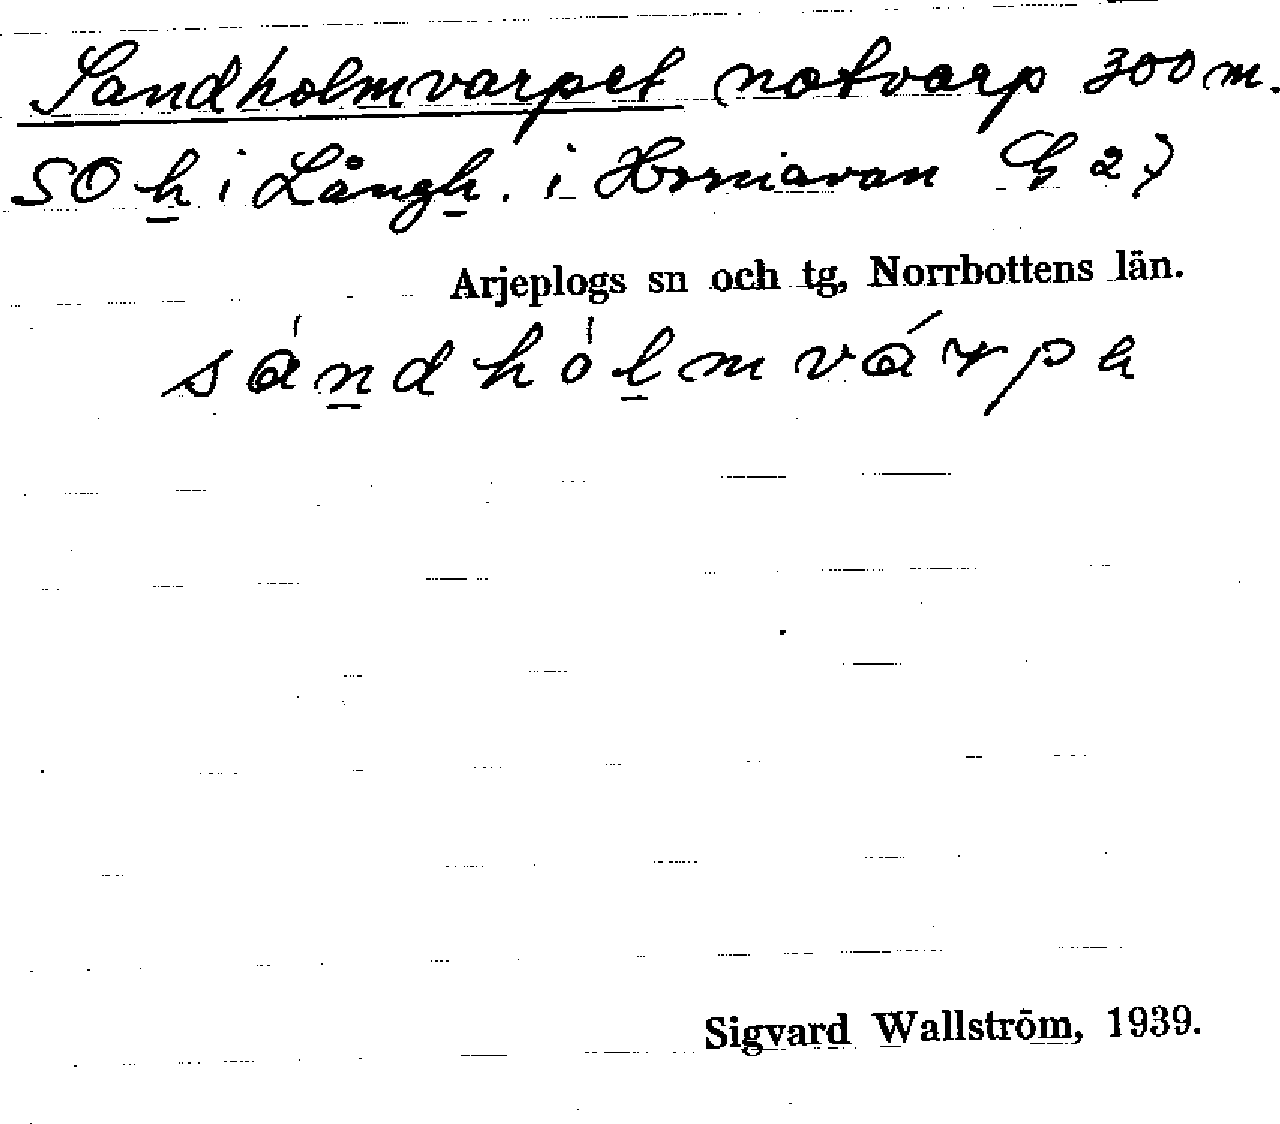 Sandholmvarpet notvarp 300 m.
SO h i Långh. i Hornavan G 27
Arjeplogs sn och tg, Norrbottens län.
sándhólmvárpa
Sigvard Wallström, 1939.